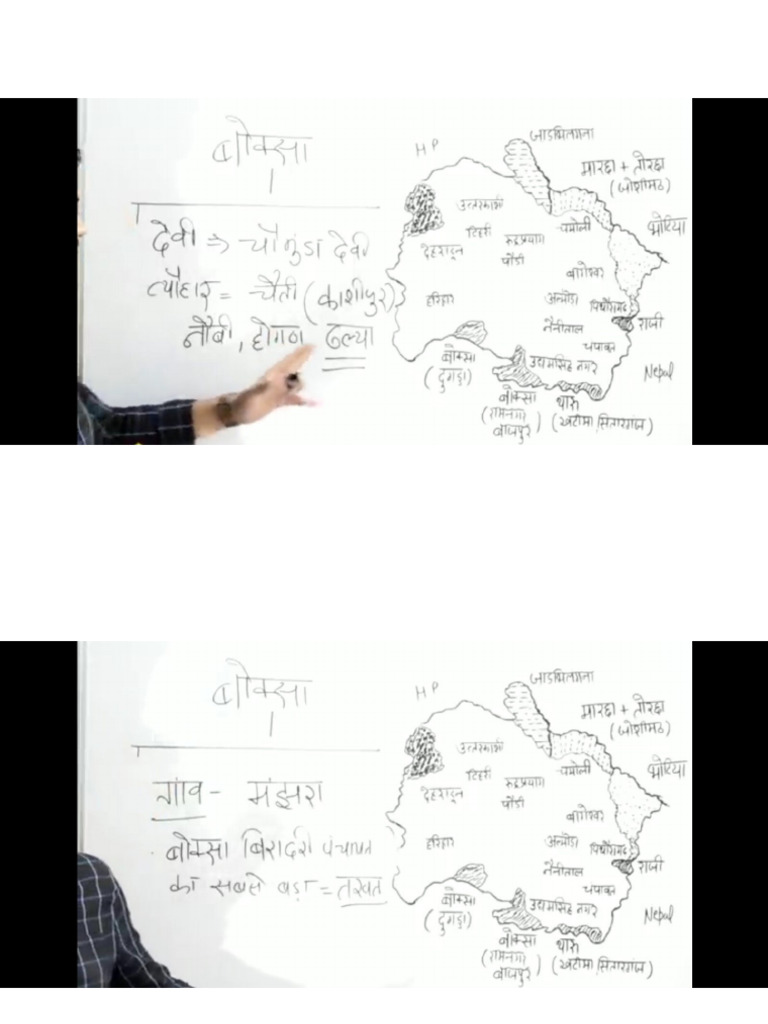 बोक्सा
देवी ⇒ चौमुंडा देवी
त्यौहार = चैती (काशीपुर)
नौबी, होगण ढल्या
HP
जाड भिलंगना
मारछा + तोरछा
(जोशीमठ)
भोटिया
उत्तरकाशी
टिहरी
रुद्रप्रयाग
चमोली
देहरादून
पौडी
बागेश्वर
हरिद्वार
अल्मोडा
पिथौरागढ़
राजी
नैनीताल
चंपावत
Nepal
बोक्सा
(दुगड्डा)
उद्यमसिंह नगर
बोक्सा
(रामनगर
बाजपुर)
थारु
(खटीमा सितारगंज)
बोक्सा
गांव - मंझरा
बोक्सा बिरादरी पंचायत
का सबसे बड़ा = तखत
HP
जाड भिलंगना
मारछा + तोरछा
(जोशीमठ)
भोटिया
उत्तरकाशी
टिहरी
रुद्रप्रयाग
चमोली
देहरादून
पौडी
बागेश्वर
हरिद्वार
अल्मोडा
पिथौरागढ़
राजी
नैनीताल
चंपावत
Nepal
बोक्सा
(दुगड्डा)
उद्यमसिंह नगर
बोक्सा
(रामनगर
बाजपुर)
थारु
(खटीमा सितारगंज)